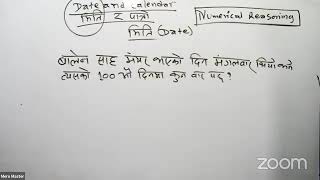 Date and calendar
मिति र पात्रो
मिति (Date)
Numerical Reasoning
बालेन साह मेयर भएको दिन मंगलवार थियो भने
त्यसको १०० औं दिनमा कुन वार पर्छ ?
zoom
Mero Master